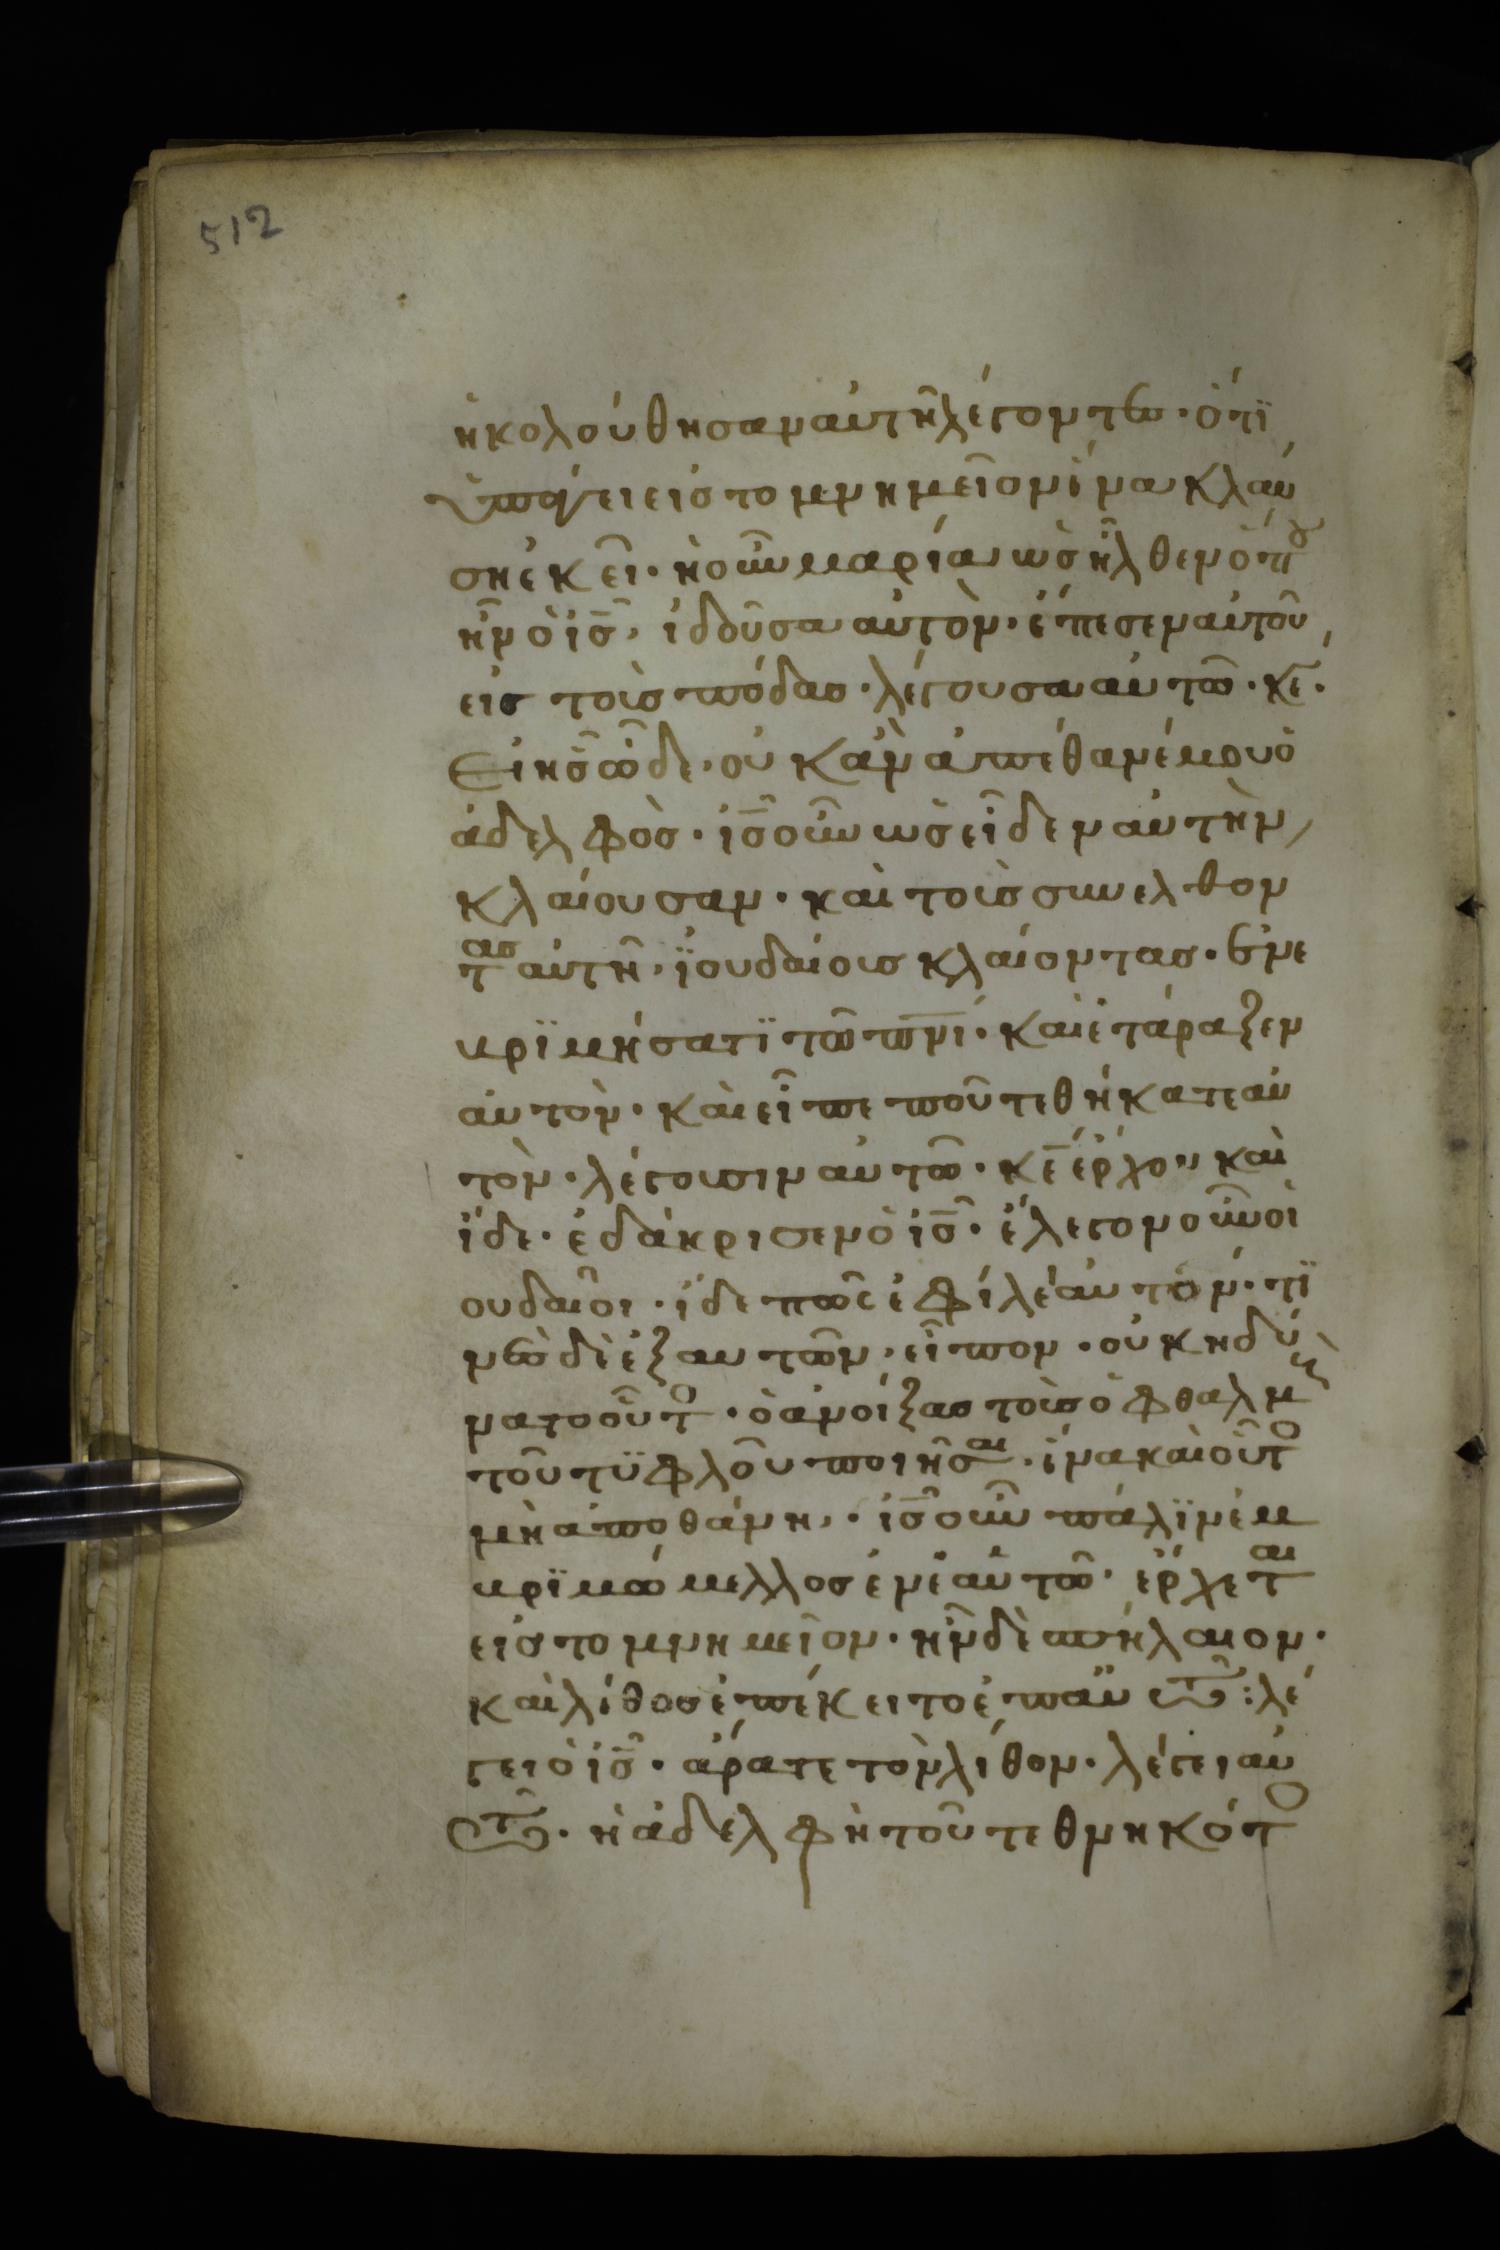 512
ἠκολούθησαν αὐτῆ λέγοντες · ὅτϊ
ὑπάγει εἰς το μνημεῖον ἵνα κλαύ
ση ἐκεῖ · ἡ οὖν μαρία ὡς ἦλθεν ὅπου
ἦν ὁ ἰς̅, ἰδοῦσα αὐτὸν · ἔπεσεν αὐτοῦ
εἰς τοὺς πόδας · λέγουσα αὐτῶ · κε̅ ·
Εἰ ἦς ὧδε · οὐκ ἂν ἀπέθανέ μου ὁ
ἀδελφὸς · ἰς̅ οὖν ὡς εἶδεν αὐτὴν,
κλαίουσαν · καὶ τοὺς συνελθον
τας αὐτῆ, ϊουδαίους κλαίοντας · ἐνε
βρϊμήσατϊ τῶ πνι̅ · καὶ ἐτάραξεν
αὑτὸν · καὶ εἶπε ποῦ τεθήκατε αὐ
τὸν · λέγουσιν αὐτῶ · κε̅ ἔρχου καὶ
ἴδε · ἐδάκρισεν ὁ ἰς̅ · ἔλεγον οὖν οἱ
ουδαῖοι · ἴδε πῶς ἐφίλε αὐτόν · τϊ
νὲς δὲ ἐξ αυτῶν, εἶπον · οὐκ ηδύ
νατο οὗτος · ὁ ἀνοίξας τοὺς ὀφθαλμοὺς
τοῦ τϋφλοῦ ποιῆσαι · ἵνα καὶ οὗτος
μὴ ἀποθάνη, · ἰς̅ οὖν πάλϊν ἐμ
βρϊμώμελλος ἐν ἑαυτῶ · ἔρχεται
εἰς το μνημεῖον · ἦν δὲ σπήλαιον ·
καὶ λίθος ἐπέκειτο ἐπ αὐτῶ : λέ
γει ὁ ἰς̅ · ἄρατε τὸν λίθον · λέγει αὐ
τῶ · ἡ ἀδελφὴ τοῦ τεθνηκότος